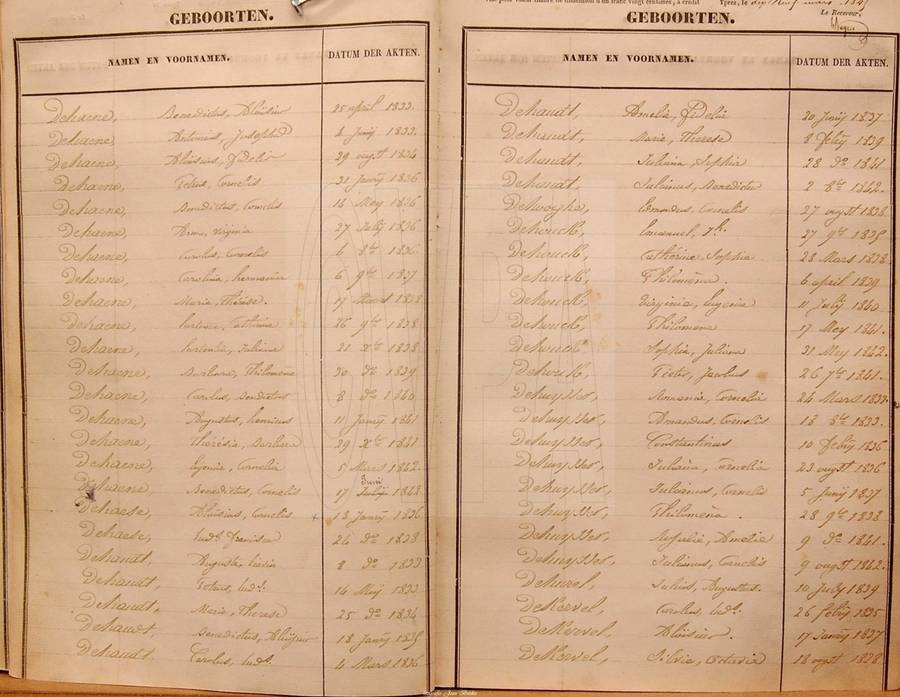 GEBOORTEN.
NAMEN EN VOORNAMEN. DATUM DER AKTEN.
Dehaene, Benedictus, Aloïsius 25 april 1833.
Dehaene, Antonius, Joseph 8 Junij 1833.
Dehaene, Aloïsius, Fideli 29 augst 1834
Dehaene, Petus, Cornelis 31 Janrij 1836
Dehaene, Benedictus, Cornelis 14 Mey 1836
Dehaene, Virginia 27 Julij 1836
Dehaene, Carolus, Cornelis 6 8bre 1836
Dehaene, Carolina, hermania 6 9bre 1837
Dehaene, Maria, Thérèse. 17 Maars 1838
Dehaene, Cathrina 26 9bre 1838
Dehaene, Juliana 21 xbre 1838
Dehaene, Barbara, Philomena 30 do 1839
Dehaene, Carolus, Benedictus 8 do 1840
Dehaene, Augustus, henricus 11 Janrij 1841
Dehaene, Thérésia, Barbara 29 xbre 1841
Dehaene, Eugenie, Cornelia 5 Mars 1842
Dehaene, Benedictus, Cornelis 17 Juni 1842
Dehaese, Aloïsius, Cornelis 18 Janrij 1836
Dehaese, Ludo. Francisca 26 do 1838
Dehaudt, Augusta 8 do 1833
Dehaudt, Petrus, Ludo. 14 Meij 1833
Dehaudt, Maria, Therese 25 do 1834
Dehaudt, Benedictus, Aloïsius 18 Janrij 1835
Dehaudt, Carolus, Ludo. 4 Mars 1836
Ypres, le
Le Receveur,
GEBOORTEN.
NAMEN EN VOORNAMEN. DATUM DER AKTEN.
Dehaudt, Amelia, Fidelia 20 Junij 1837
Dehaudt, Maria, Therese 8 febrij 1839
Dehaudt, Juliana, Sophia 28 do 1841
Dehaudt, Julianus, Benedictus 2 8bre 1842.
Edmondus, Cornelis 27 augst 1838
Dehouck, Emanuel, Jh. 27 9bre 1835
Dehouck, Catherine, Sophia 28 Mars 1838
Dehouck, Philomena 6 april 1839
Dehouck, Virginia, Eugenia 11 July 1840
Dehouck, Philomena 17 Mey 1841.
Dehouck, Sophia, Juliana 31 Mey 1842.
Dehouck, Pieter, Jacobus 26 7bre 1841.
Dehuysser, Romania, Cornelia 24 Mars 1833.
Dehuysser, Amandus, Cornelis 18 8bre 1833.
Dehuysser, Constantinus 10 febrij 1836
Dehuysser, Juliana, Cornelia 23 augst 1836
Dehuysser, Julianus, Cornelis 5 Junij 1837
Dehuysser, Philomena. 28 9bre 1838.
Dehuysser, Amelia 9 do 1841.
Dehuysser, Julianus, Cornelis 9 augst 1842.
Dekervel, Julius, Augustus. 10 July 1839
Dekervel, Carolus, Ludo. 26 febrij 1835
Dekervel, Aloïsius. 17 Janrij 1837
Dekervel, Silvia, Octavia 18 augst 1838